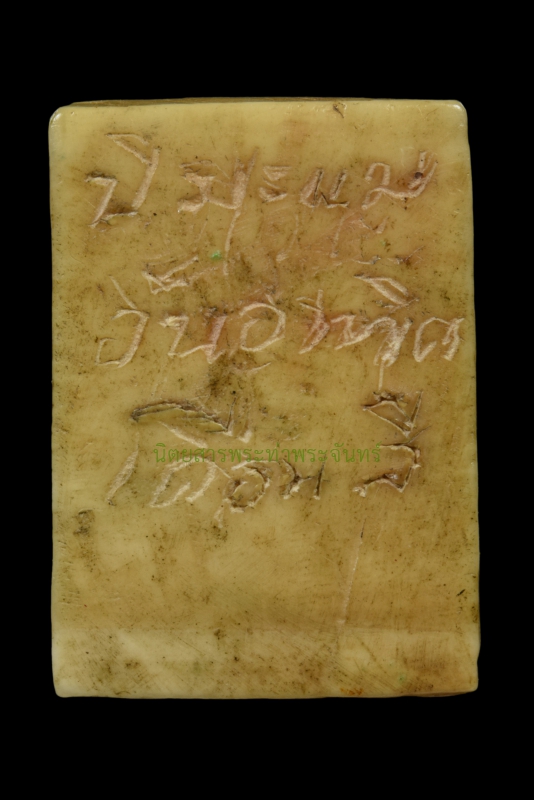 ปีมะแม
วันอาทิต
เดือน
นิตยสารพระท่าพระจันทร์